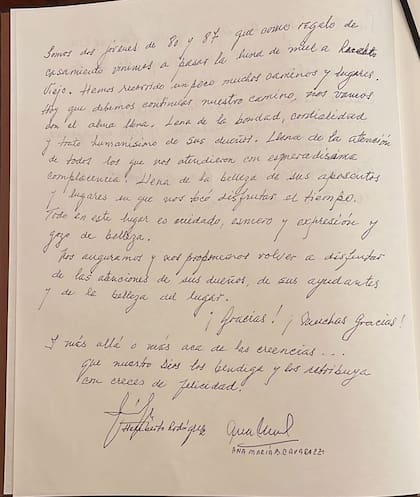 Somos dos jóvenes de 80 y 87 que como regalo de
casamiento vinimos a pasar la luna de miel a
Viejo. Hemos recorrido un poco muchos caminos y lugares.
Hoy que debemos continuar nuestro camino, nos vamos
con el alma llena. Llena de la bondad, cordialidad
y trato humanísimo de sus dueños. Llena de la atención
de todos los que nos atendieron con esmeradísima
complacencia. Llena de la belleza de sus aposentos
y lugares en que nos tocó disfrutar el tiempo.
Todo en este lugar es cuidado, esmero y expresión y
gozo de belleza.
Nos auguramos y nos proponemos volver a disfrutar
de las atenciones de sus dueños, de sus ayudantes
y de la belleza del lugar.
¡Gracias! ¡Muchas Gracias!
Y más allá o más acá de las creencias...
que nuestro Dios los bendiga y los retribuya
con creces de felicidad.
Rodríguez
ANA MARÍA B.